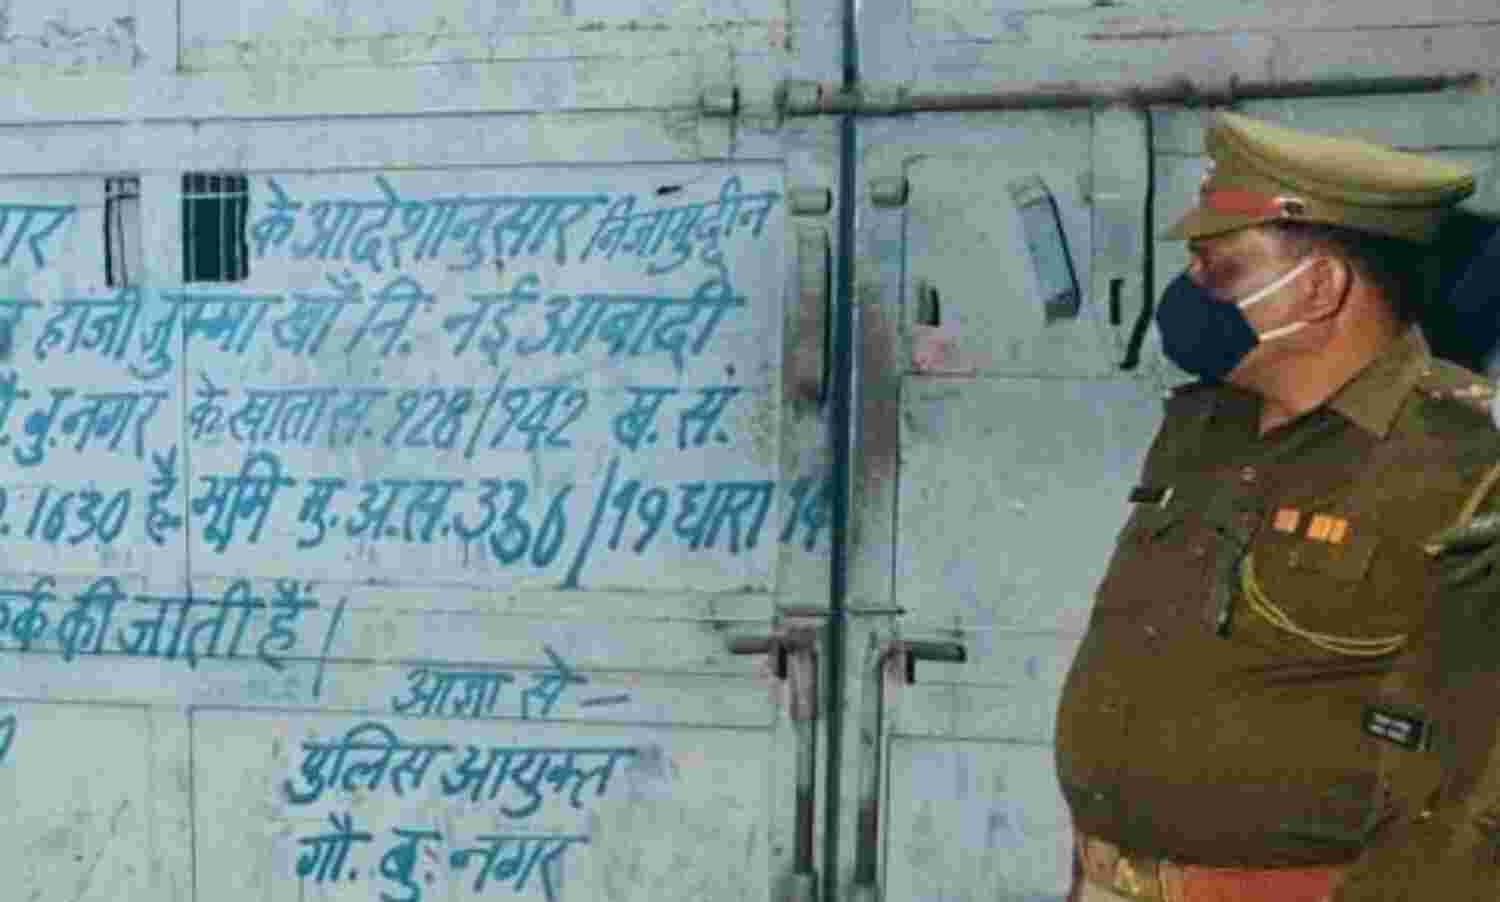 के आदेशानुसार निजामुद्दीन
हाजी जुम्मा खाँ नि. नई आबादी
बु. नगर के खाता स. 128/142 ख. सं.
1630 है. भूमि मु. अ. स. 336/19 धारा
की जाती है।
आज्ञा से —
पुलिस आयुक्त
गौ. बु. नगर